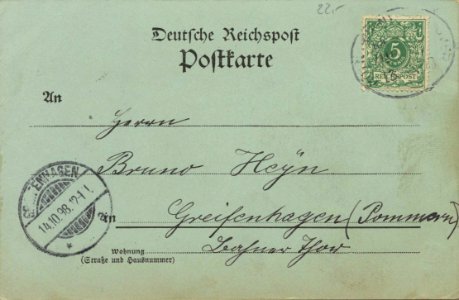 22.-
Deutsche Reichspost
Postkarte
5
REICHSPOST
An
Herrn
Bruno Heyn
in
Greifenhagen (Pommern)
Bahner Thor
Wohnung
(Straße und Hausnummer)
ENHAGEN
14.10.98.12-1 N.